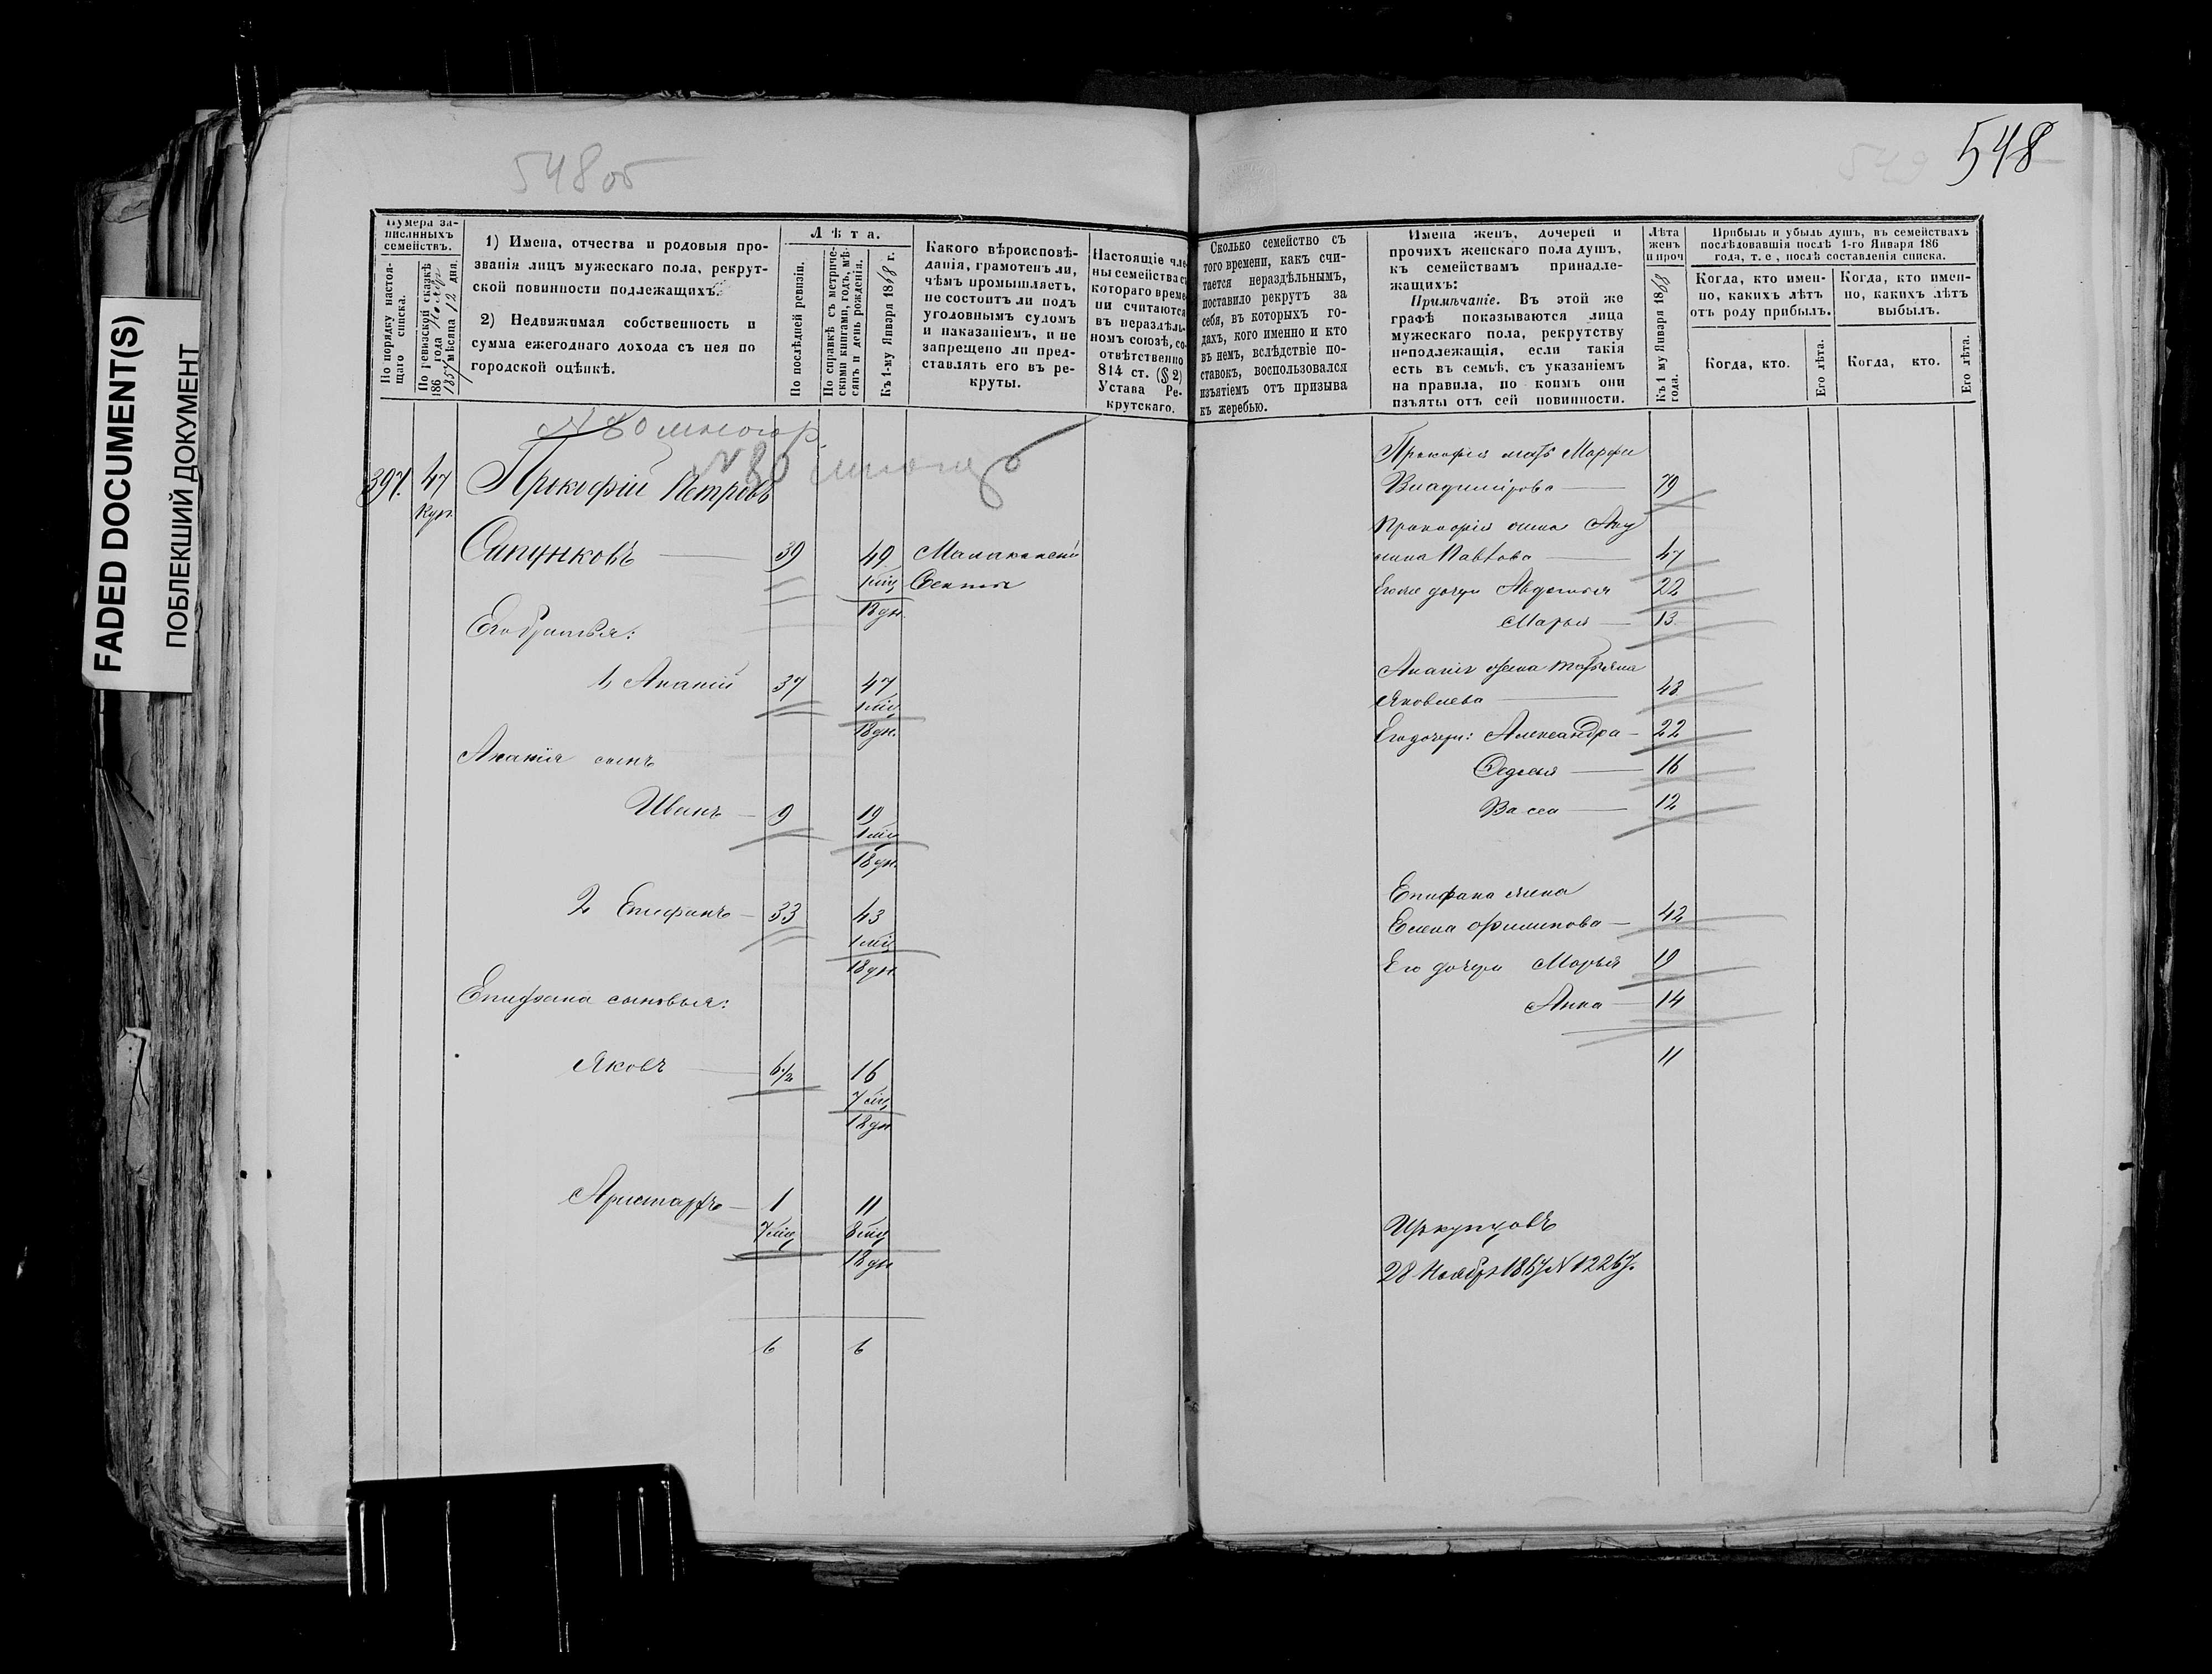 FADED DOCUMENT(S)
ПОБЛЕКШИЙ ДОКУМЕНТ
548об
Нумера за-
писанныхъ
семействъ.
По порядку настоя-
щаго списка.
По ревизской сказкѣ
186 года Нояб
1857 мѣсяца 12 дня.
1) Имена, отчества и родовыя про-
званія лицъ мужескаго пола, рекрут-
ской повинности подлежащихъ.
2) Недвижимая собственность и
сумма ежегоднаго дохода съ нея по
городской оцѣнкѣ.
Лѣта.
По послѣдней ревизіи.
По справкѣ съ метриче-
скими книгами, годъ, мѣ-
сяцъ и день рожденія.
Къ 1-му Января 1868 г.
Какого вѣроисповѣ-
данія, грамотенъ ли,
чѣмъ промышляетъ,
не состоитъ ли подъ
уголовнымъ судомъ
и наказаніемъ, и не
запрещено ли пред-
ставлять его въ ре-
круты.
Настоящіе чле-
ны семейства съ
котораго време-
ни считаются
въ нераздѣль-
номъ союзѣ, со-
отвѣтственно
814 ст. (§ 2)
Устава Ре-
крутскаго.
№ 80
№ 80
397. 47 Прокофій Петровъ
Куп.
Сапунковъ — 39 49 Малаканской
1 мѣц Секты
18 дн.
Его братья:
1, Ананій 37 47
1 мѣц
18 дн.
Ананія сынъ
Иванъ — 9 19
1 мѣц
18 дн.
2 Епифанъ — 33 43
1 мѣц
18 дн.
Епифана сыновья:
Яковъ 6 1/2 16
7 мѣц
18 дн
Аристархъ — 1 11
7 мѣц 8 мѣц
18 дн
6 6
548
Сколько семейство съ
того времени, какъ счи-
тается нераздѣльнымъ,
поставило рекрутъ за
себя, въ которыхъ го-
дахъ, кого именно и кто
въ немъ, вслѣдствіе по-
ставокъ, воспользовался
изъятіемъ отъ призыва
къ жеребью.
Имена женъ, дочерей и
прочихъ женскаго пола душъ,
къ семействамъ принадле-
жащихъ:
Примѣчаніе. Въ этой же
графѣ показываются лица
мужескаго пола, рекрутству
неподлежащія, если такія
есть въ семьѣ, съ указаніемъ
на правила, по коимъ они
изъяты отъ сей повинности.
Лѣта
женъ
и проч
Къ 1 му Января 1868
года.
Прибыль и убыль душъ, въ семействахъ
послѣдовавшія послѣ 1-го Января 186
года, т. е, послѣ составленія списка.
Когда, кто имен-
но, какихъ лѣтъ
отъ роду прибылъ.
Когда, кто имен-
но, какихъ лѣтъ
выбылъ.
Когда, кто.
Его лѣта.
Когда, кто.
Его лѣта.
Прокофія мать Марфа
Владимірова — 79
Прокофія жена Аку
лина Павлова — 47
Его же дочери Авдотья 22
Марья — 13
Ананія жена Татьяна
Яковлева — 43
Его дочери: Александра — 22
16
Васса — 12
Епифана жена
Елена Филипова — 42
Его дочери Марья 19
Анна — 14
11
28 Ноября 1867 № 12267.